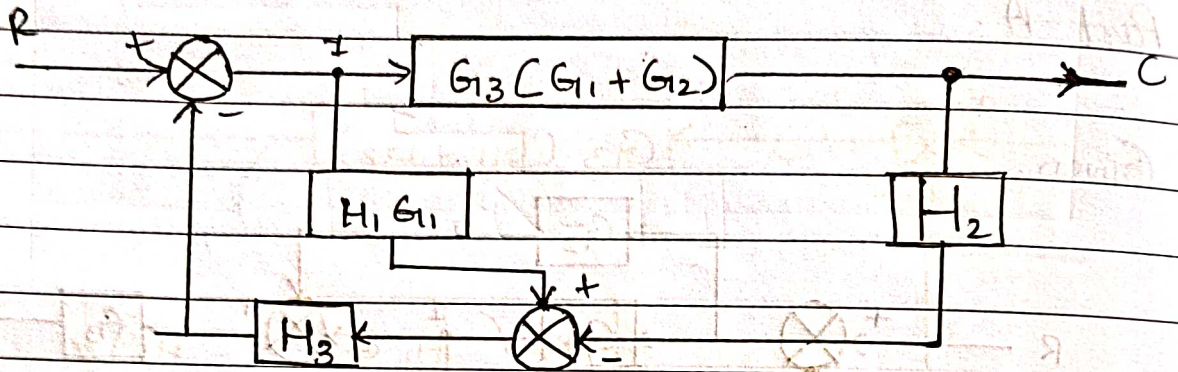 R
+
-
1
G3(G1+G2)
C
H1G1
H2
+
-
H3